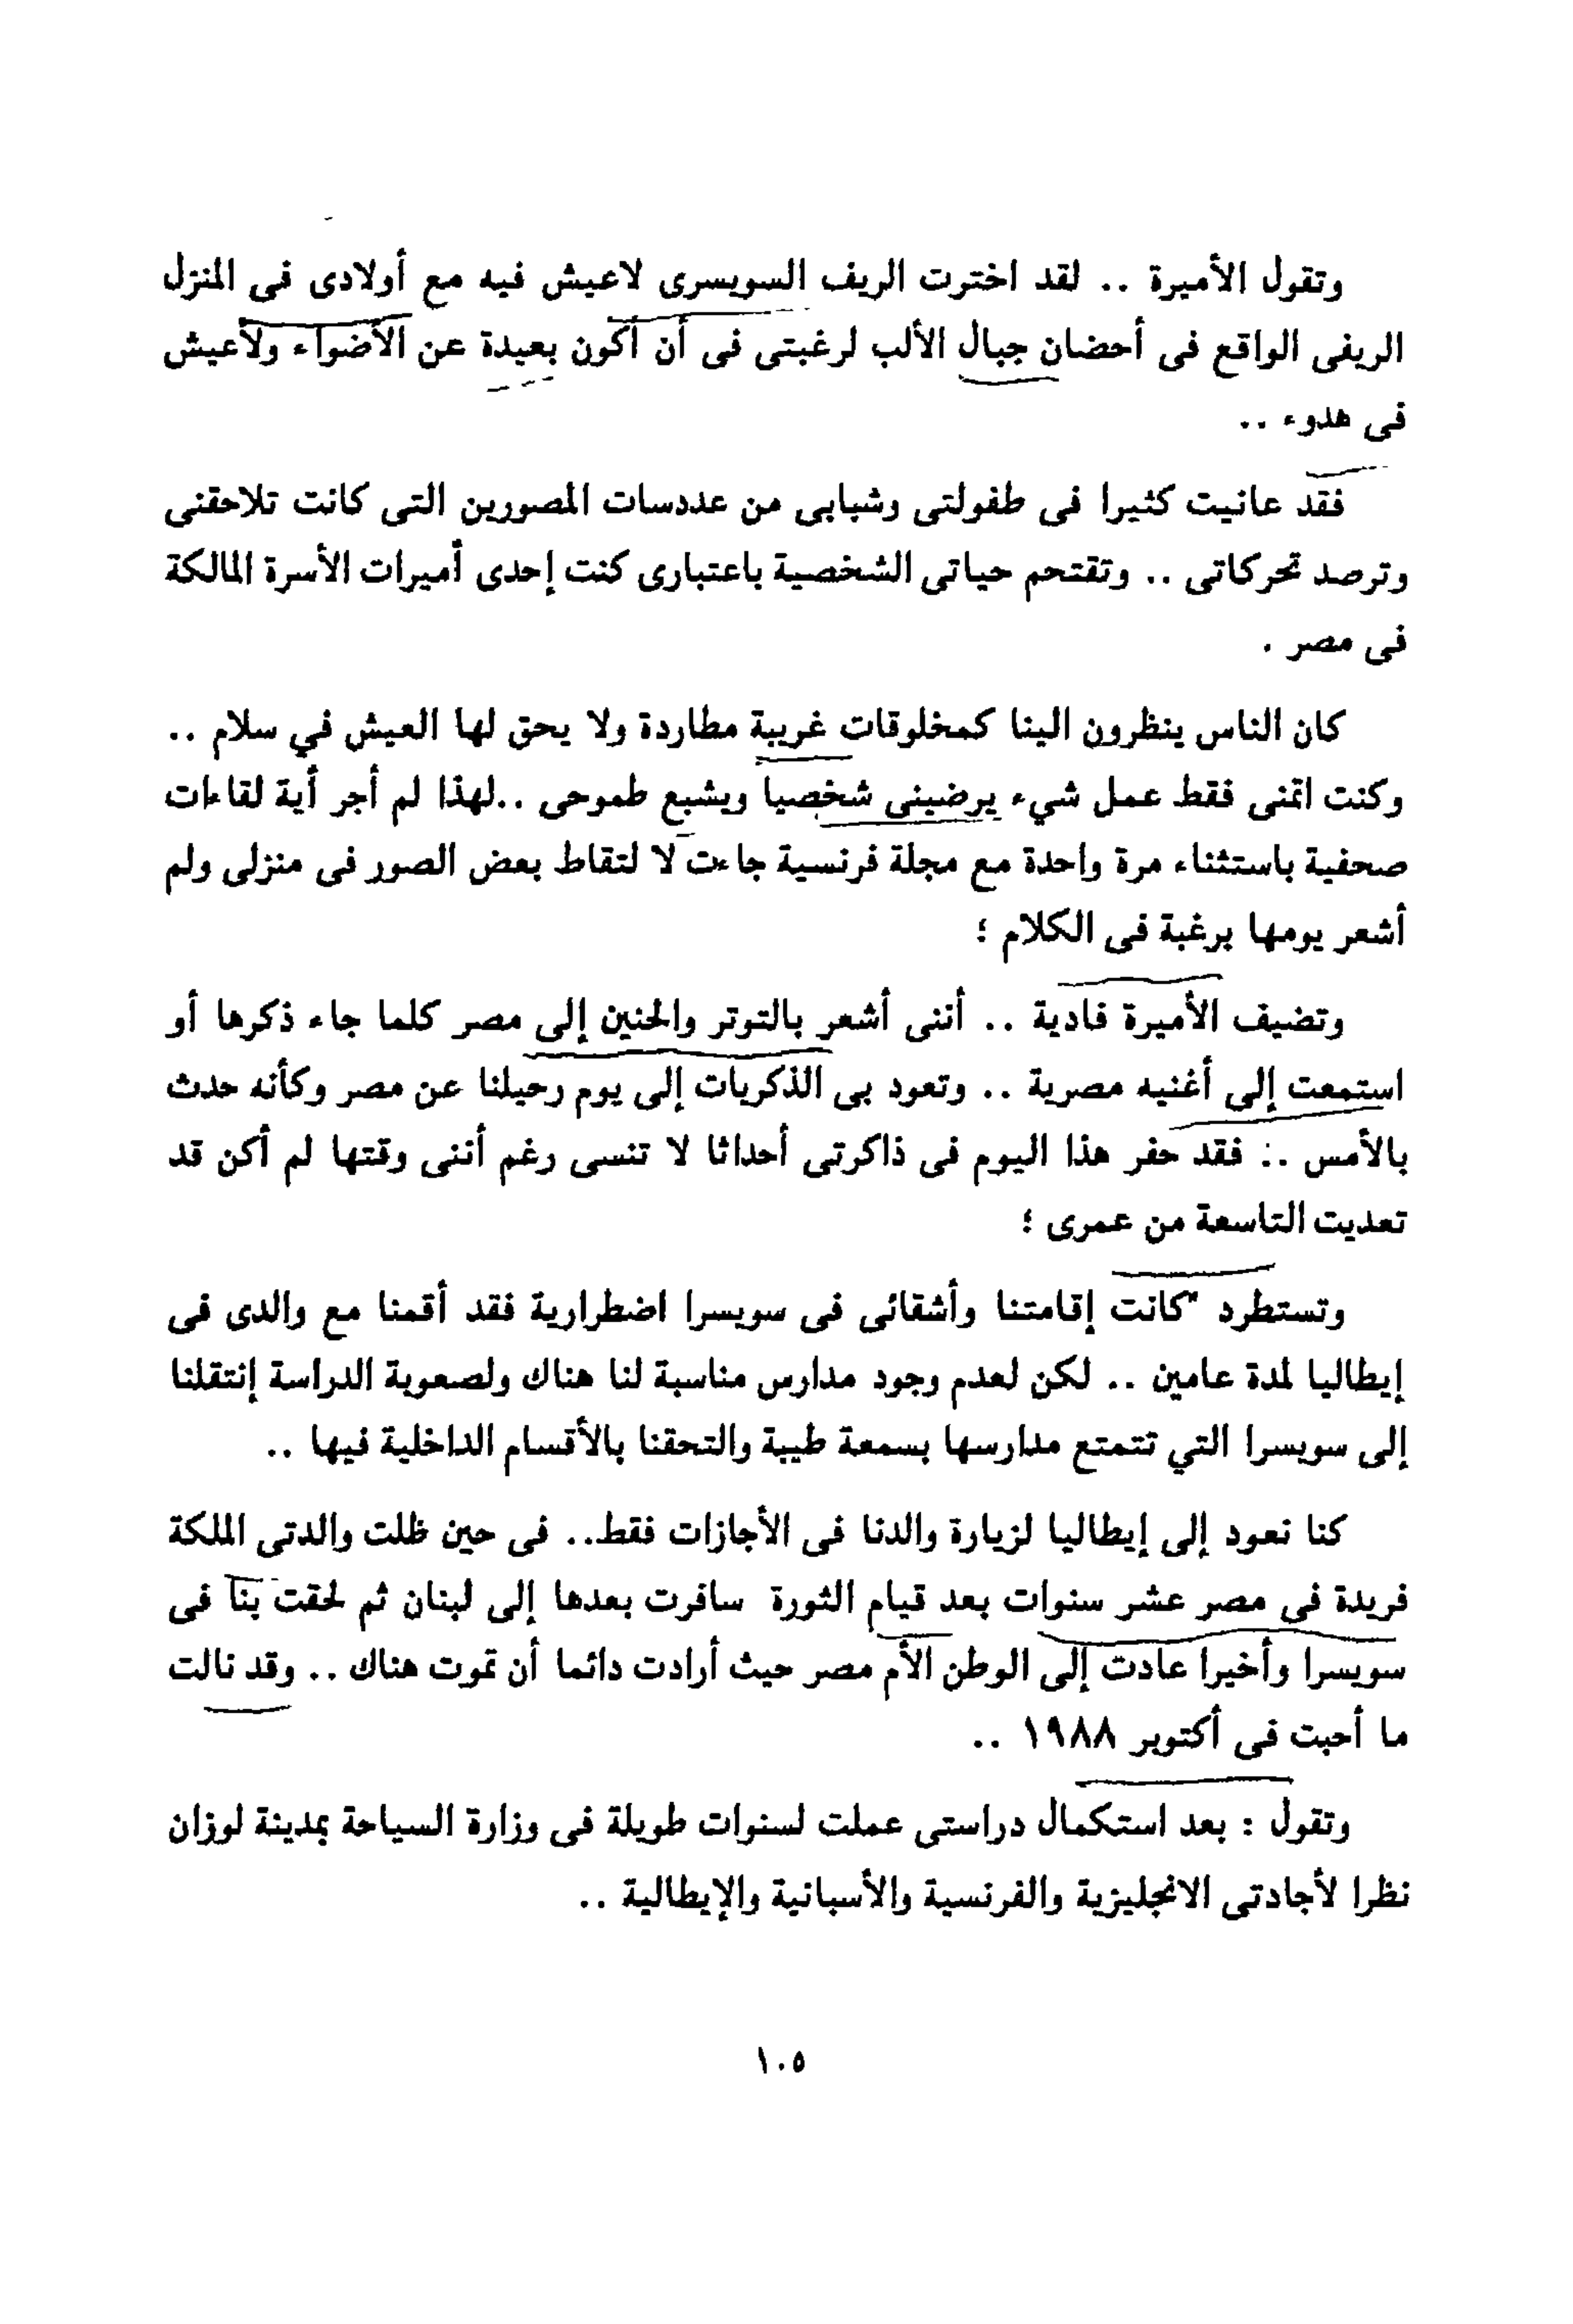 وتقول الأميرة .. لقد اخترت الريف السويسرى لاعيش فيه مع أولادى فى المنزل
الريفى الواقع فى أحضان جبال الألب لرغبتى فى أن أكون بعيدة عن الأضواء ولأعيش
فى هدوء ..
فقد عانيت كثيرا فى طفولتى وشبابى من عددسات المصورين التى كانت تلاحقنى
وترصد تحركاتى .. وتقتحم حياتى الشخصية باعتبارى كنت إحدى أميرات الأسرة المالكة
فى مصر .
كان الناس ينظرون الينا كمخلوقات غريبة مطاردة ولا يحق لها العيش في سلام ..
وكنت اتمنى فقط عمل شيء يرضينى شخصيا ويشبع طموحى ..لهذا لم أجر أية لقاءات
صحفية باستثناء مرة واحدة مع مجلة فرنسية جاءت لا لتقاط بعض الصور فى منزلى ولم
أشعر يومها برغبة فى الكلام ؛
وتضيف الأميرة فادية .. أننى أشعر بالتوتر والحنين إلى مصر كلما جاء ذكرها أو
استمعت إلى أغنيه مصرية .. وتعود بى الذكريات إلى يوم رحيلنا عن مصر وكأنه حدث
بالأمس .: فقد حفر هذا اليوم فى ذاكرتى أحداثا لا تنسى رغم أننى وقتها لم أكن قد
تعديت التاسعة من عمرى ؛
وتستطرد "كانت إقامتنا وأشقائى فى سويسرا اضطرارية فقد أقمنا مع والدى فى
إيطاليا لمدة عامين .. لكن لعدم وجود مدارس مناسبة لنا هناك ولصعوبة الدراسة إنتقلنا
إلى سويسرا التي تتمتع مدارسها بسمعة طيبة والتحقنا بالأقسام الداخلية فيها ..
كنا نعود إلى إيطاليا لزيارة والدنا فى الأجازات فقط.. فى حين ظلت والدتى الملكة
فريدة فى مصر عشر سنوات بعد قيام الثورة سافرت بعدها إلى لبنان ثم لحقت بنا فى
سويسرا وأخيرا عادت إلى الوطن الأم مصر حيث أرادت دائما أن تموت هناك .. وقد نالت
ما أحبت فى أكتوبر ١٩٨٨ ..
وتقول : بعد استكمال دراستى عملت لسنوات طويلة فى وزارة السياحة بمدينة لوزان
نظرا لأجادتى الانجليزية والفرنسية والأسبانية والإيطالية ..
١٠٥